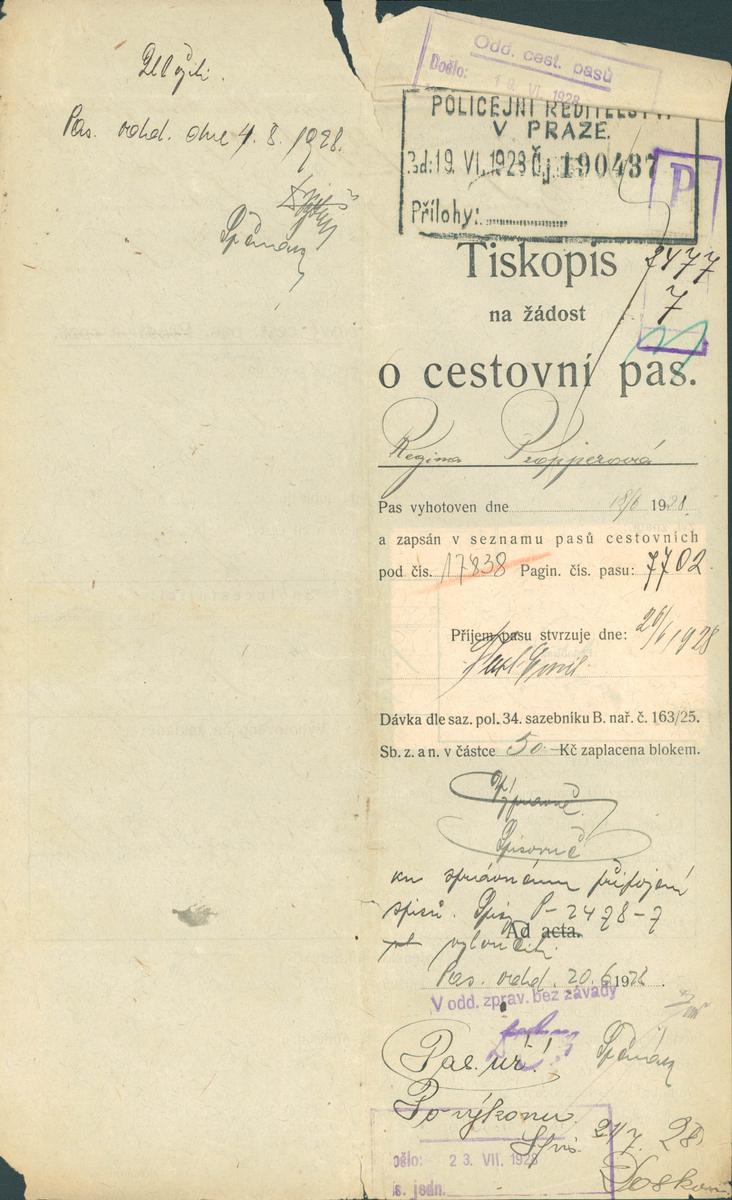 Pas. odd. dne 4. 8. 1928.
Odd. cest. pasů
Došlo: 19. VI. 1928
POLICEJNÍ ŘEDITELSTVÍ
V PRAZE.
Zd: 19. VI. 1928 Čj. 190437
P
Přílohy:
2477
7
Tiskopis
na žádost
o cestovní pas.
Regina Propperová
Pas vyhotoven dne 18/6 1928.
a zapsán v seznamu pasů cestovních
pod čís. 17838 Pagin. čís. pasu: 7702
Příjem pasu stvrzuje dne: 26/6 1928
Dávka dle saz. pol. 34. sazebníku B. nař. č. 163/25.
Sb. z. a n. v částce 50.- Kč zaplacena blokem.
Výpravně
Spisovně
ku správnému připojení
spisů. Spisy P-2478-7
Ad acta.
vyloučiti.
Pas. odd. 20. 6 1928.
V odd. zprav. bez závady
Pas. úř.!
Po výkonu
21/7. 28
Došlo: 23. VII. 1928